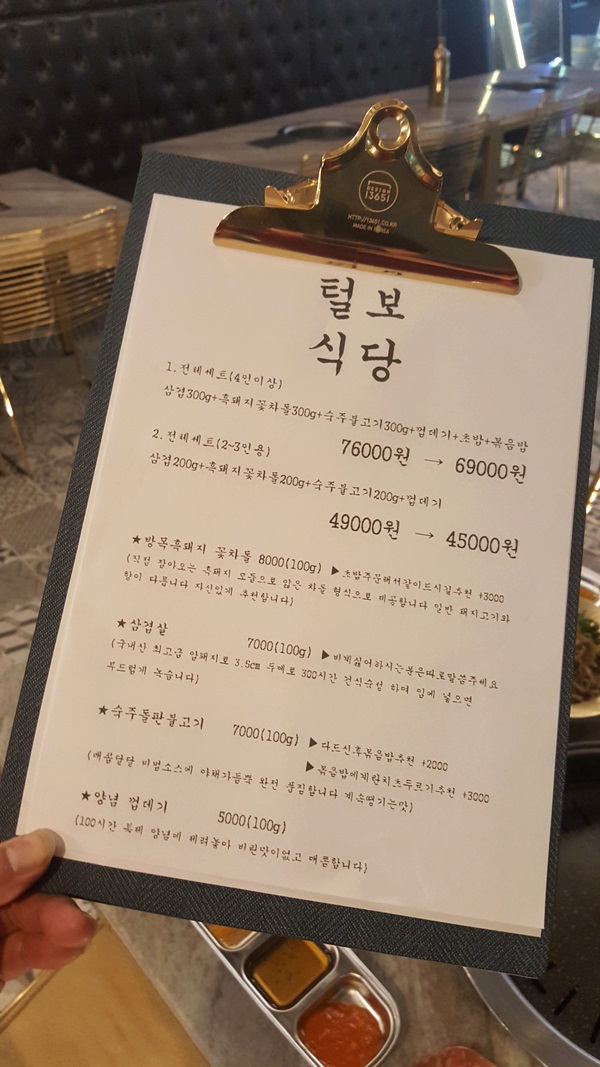 DESIGN
13651
HTTP://13651.CO.KR
MADE IN KOREA
털보
식당
1. 전테세트(4인이상)
삼겹300g+흑돼지꽃차돌300g+숙주불고기300g+껍데기+초밥+볶음밥
76000원 → 69000원
2. 전테세트(2~3인용)
삼겹200g+흑돼지꽃차돌200g+숙주불고기200g+껍데기
49000원 → 45000원
★방목흑돼지 꽃차돌 8000(100g) ▶초밥주문해서같이드시길추천 +3000
(직접 잡아오는 흑돼지 모듬으로 얇은 차돌 형식으로 제공합니다 일반 돼지고기와
향이 다릅니다 자신있게 추천합니다)
★삼겹살 7000(100g) ▶비계싫어하시는분은따로말씀주세요
(국내산 최고급 암돼지로 3.5cm 두께로 300시간 건식숙성 하여 입에 넣으면
부드럽게 녹습니다)
★숙주돌판불고기 7000(100g) ▶다드신후볶음밥추천 +2000
▶볶음밥에계란치츠두르기추천 +3000
(매콤달달 비법소스에 야채가듬뿍 완전 푸짐합니다 계속땡기는맛)
★양념 껍데기 5000(100g)
(100시간 특제 양념에 재려놓아 비린맛이없고 매콤합니다)